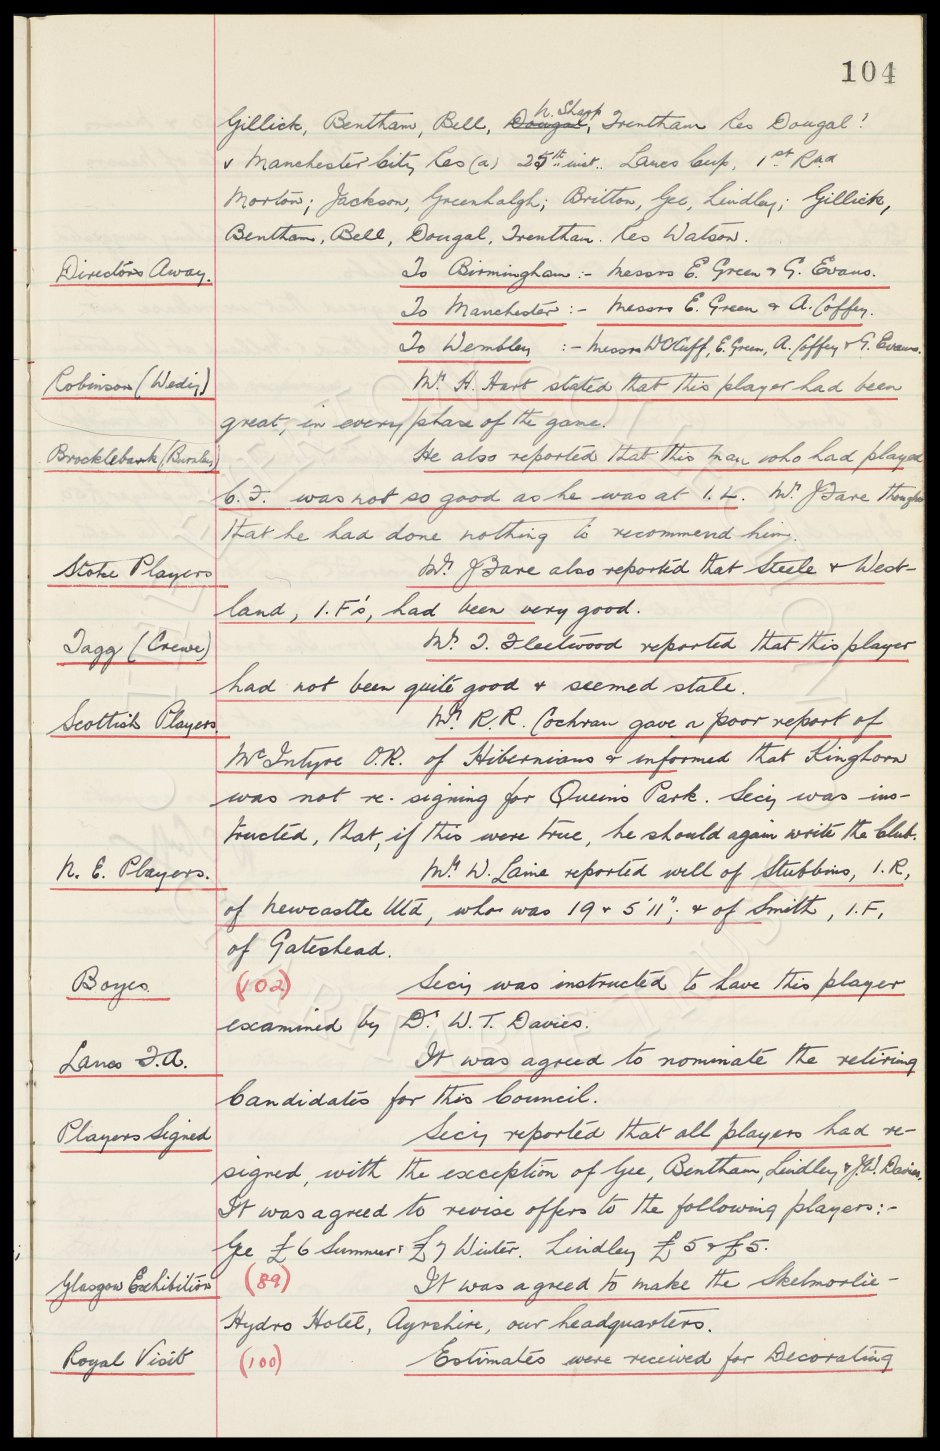 104
N. Sharp
Gillick, Bentham, Bell, Dougal, Trentham Res Dougal!
v Manchester City Res (a) 25th inst. Lancs Cup, 1st Rnd
Morton; Jackson, Greenhalgh; Britton, Gee, Lindley; Gillick,
Bentham, Bell, Dougal, Trentham. Res Watson.
Directors Away. To Birmingham :- Messrs E. Green & G. Evans.
To Manchester :- Messrs E. Green & A. Coffey.
To Wembley :- Messrs W C Cuff, E. Green, A. Coffey & G. Evans.
Robinson (Wed'y) Mr. H. Hart stated that this player had been
great, in every phase of the game.
Brocklebank (Burnley) He also reported that this man who had played
C.F. was not so good as he was at I.L. Mr. J Fare thought
that he had done nothing to recommend him.
Stoke Players Mr. J Fare also reported that Steele & West-
land, I.F's, had been very good.
Tagg (Crewe) Mr. T. Fleetwood reported that this player
had not been quite good & seemed stale.
Scottish Players. Mr. R.R. Cochran gave a poor report of
McIntyre O.R. of Hibernians & informed that Kinghorn
was not re-signing for Queens Park. Secy was ins-
tructed, that, if this were true, he should again write the Club.
N. E. Players. Mr. W. Laine reported well of Stubbins, I.R,
of Newcastle Utd, who was 19 & 5'11"; & of Smith, I.F,
of Gateshead.
Boyes. (102) Secy was instructed to have this player
examined by Dr. W. T. Davies.
Lancs F.A. It was agreed to nominate the retiring
Candidates for this Council.
Players Signed Secy reported that all players had re-
signed, with the exception of Gee, Bentham, Lindley & J.W. Davies.
It was agreed to revise offers to the following players:-
Gee £6 Summer £7 Winter. Lindley £5 & £5.
Glasgow Exhibition (89) It was agreed to make the Skelmorlie-
Hydro Hotel, Ayrshire, our headquarters.
Royal Visit (100) Estimates were received for Decorating